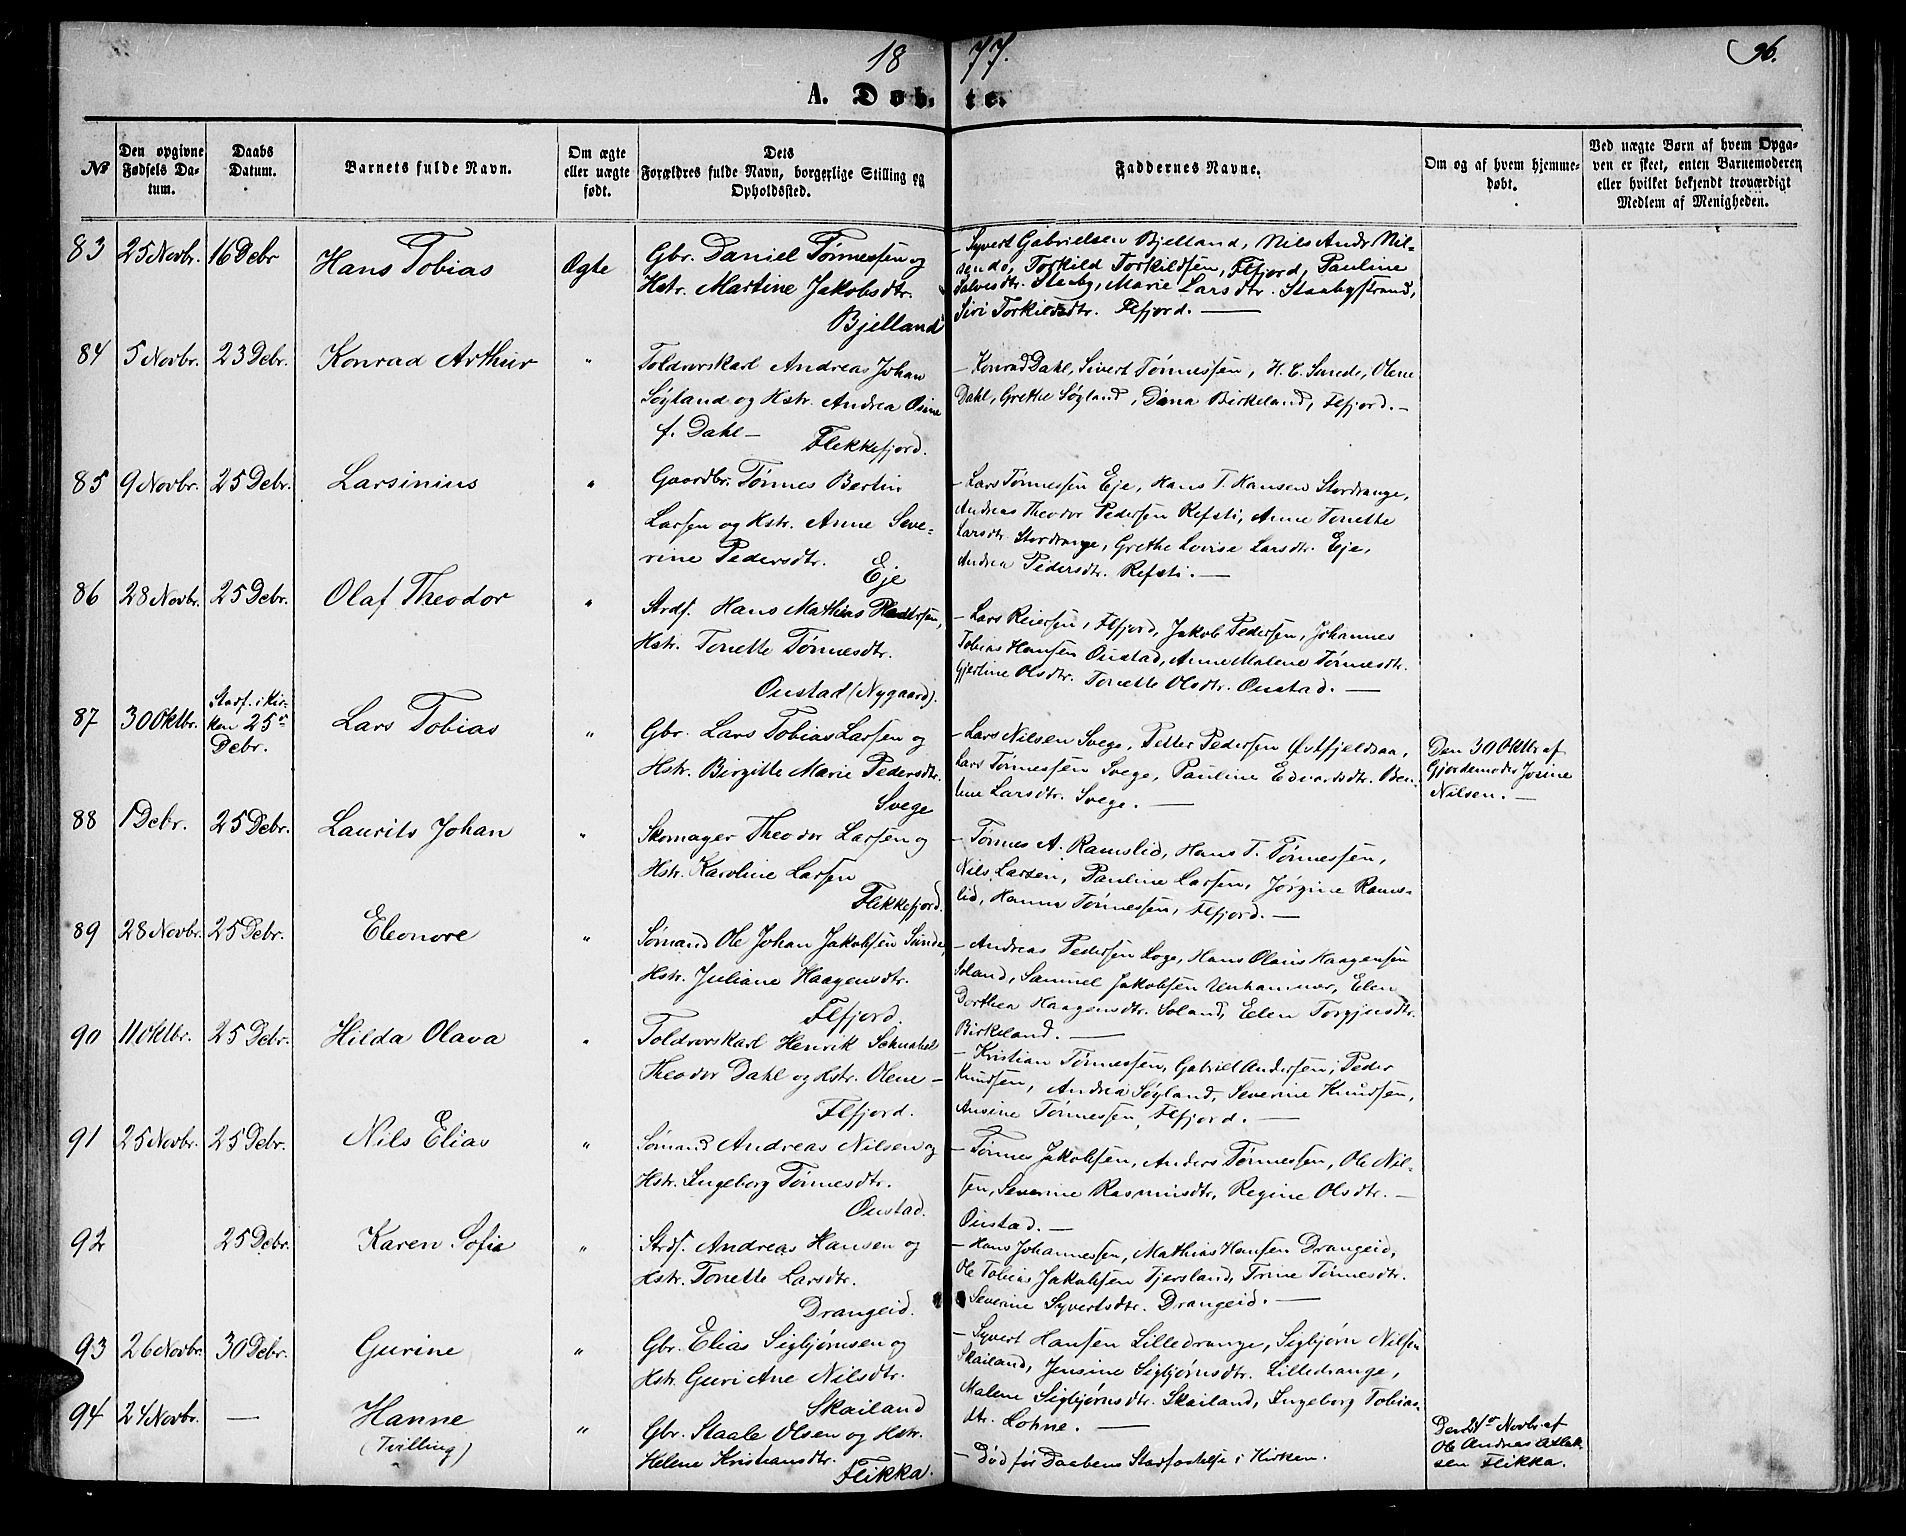 1877.
96.
A. Døbte.
No
Den opgivne Fødsels Datum.
Daabs Datum.
Barnets fulde Navn.
Om ægte eller uægte født.
Dets Forældres fulde Navn, borgerlige Stilling og Opholdssted.
Faddernes Navne.
Om og af hvem hjemmedøbt.
Ved uægte Børn af hvem Opgaven er skeet, enten Barnemoderen eller hvilket bekjendt troværdigt Medlem af Menigheden.
83 25 Novbr. 16 Debr Hans Tobias Ægte
Gbr. Daniel Tønnessen og
Hstr. Martine Jakobsdtr.
Bjelland
- Syvert Gabrielsen Bjelland, Nils Andr. Nil-
sen do, Torkild Torkildsen, Flfjord, Pauline
Salvesdtr. Staaby, Marie Larsdtr. Staabystrand,
Siri Torkildsdtr. Flfjord. —
84 5 Novbr. 23 Debr. Konrad Arthur "
Toldrorskarl Andreas Johan
Søyland og Hstr. Andrea Osine
f. Dahl — Flekkefjord.
- Konrad Dahl, Sivert Tønnessen, H. C. Sunde, Olene
Dahl, Grethe Søyland, Dina Birkeland, Flfjord. -
85 9 Novbr. 25 Debr. Larsinius "
Gaardbr. Tønnes Bertin
Larsen og Hstr. Anne Seve-
rine Pedersdtr.
Eje
- Lars Tønnessen Eje, Hans T. Hansen Stordrange,
Andreas Theodor Pedersen Refsti, Anne Tonette
Larsdtr. Stordrange, Grethe Lovise Larsdtr. Eje,
Andrea Pedersdtr. Refsti. —
86 28 Novbr. 25 Debr. Olaf Theodor "
Strdf. Hans Mathias Pedersen,
Hstr. Tonette Tønnesdtr.
Oustad (Nygaard).
- Lars Reiersen, Flfjord, Jakob Pedersen, Johannes
Tobias Hansen Oustad, Anne Malene Tønnesdtr.
Gjertine Olsdtr. Tonette Olsdtr. Oustad. —
87 30 Oktbr. Stadf. i Kir-
ken 25de
Debr.
Lars Tobias "
Gbr. Lars Tobias Larsen og
Hstr. Birgitte Marie Pedersdtr.
Svege
- Lars Nilsen Svege, Petter Pedersen Østfjeldsaa,
Lars Tønnessen Svege, Pauline Edvardsdtr. Ber-
tine Larsdtr. Svege. —
Den 30 Oktbr af
Gjordemoder Josine
Nilsen. —
88 1 Debr. 25 Debr. Laurits Johan "
Skomager Theodor Larsen og
Hstr. Karoline Larsen
Flekkefjord.
- Tønnes A. Ramslid, Hans T. Tønnessen,
Nils Larsen, Pauline Larsen, Jørgine Rams-
lid, Hanna Tønnessen, Flfjord. —
89 28 Novbr. 25 Debr. Eleonore "
Sømand Ole Johan Jakobsen Sunde,
Hstr. Juliane Haagensdtr.
Flfjord.
- Andreas Pedersen Loge, Hans Olaus Haagensen
Soland, Samuel Jakobsen Unhammer, Elen
Dorthea Haagensdtr. Soland, Elen Torgjusdtr.
Birkeland. —
90 11 Oktbr. 25 Debr. Hilda Olava "
Toldrorskarl Henrik Schnabel
Theodor Dahl og Hstr. Olene —
Flfjord.
- Kristian Tønnessen, Gabriel Andersen, Peder
Knudsen, Andrea Søyland, Severine Knudsen,
Ansine Tønnessen, Flfjord. —
91 25 Novbr. 25 Debr. Nils Elias "
Sømand Andreas Nilsen og
Hstr. Ingeborg Tønnesdtr.
Oustad.
- Tønnes Jakobsen, Anders Tønnessen, Ole Nil-
sen, Severine Rasmusdtr, Regine Olsdtr. —
Oustad. —
92 25 Debr. Karen Sofie "
Strdf. Andreas Hansen og
Hstr. Tonette Larsdtr.
Drangeid.
- Hans Johannessen, Mathias Hansen Drangeid,
Ole Tobias Jakobsen Tjersland, Trine Tønnesdtr.
Severine Syvertsdtr. Drangeid. —
93 26 Novbr. 30 Debr. Gurine "
Gbr. Elias Sigbjørnsen og
Hstr. Guri Ane Nilsdtr.
Skailand
- Syvert Hansen Lilledrange, Sigbjørn Nilsen
Skailand, Jensine Sigbjørnsdtr. Lilledrange,
Malene Sigbjørnsdtr. Skailand, Ingeborg Tobias-
dtr. Lohne. —
94 24 Novbr. — Hanne
(Tvilling) "
Gbr. Staale Olsen og Hstr.
Helene Kristiansdtr.
Flikka.
- Død før Daabens Stadfæstelse i Kirken.
Den 24de Novbr. af
Ole Andreas Aslak-
sen Flikka.